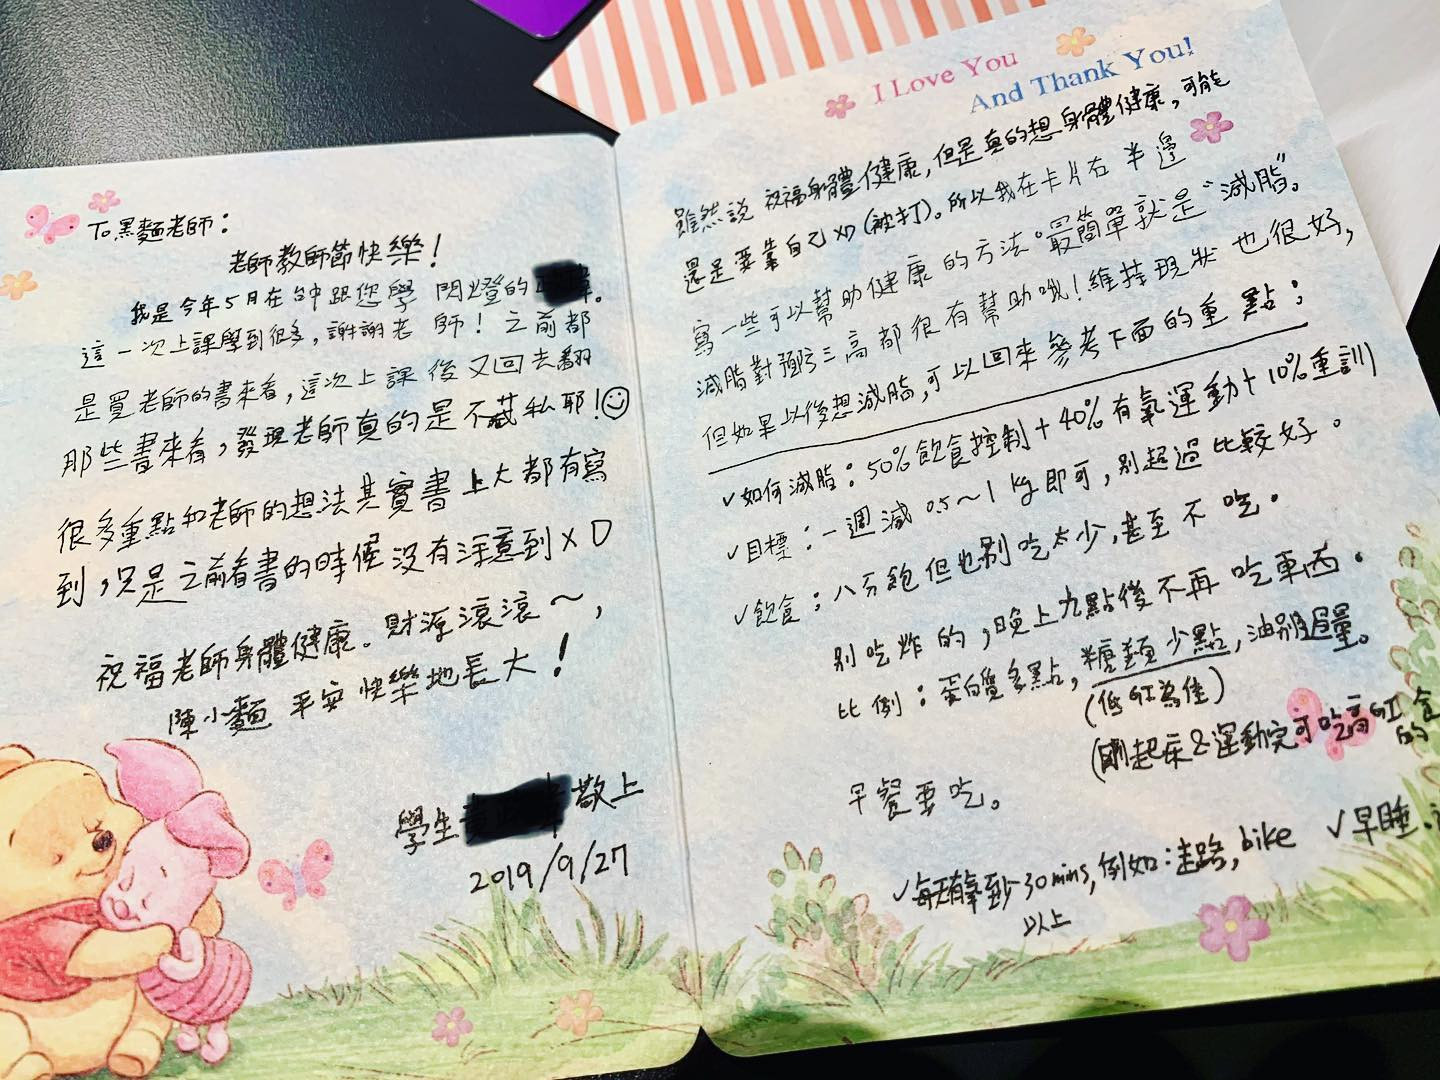 To黑麵老師：
老師教師節快樂！
我是今年5月在台中跟您學 閃燈的
這一次上課學到很多，謝謝老師！之前都
是買老師的書來看，這次上課後又回去翻
那些書來看，發現老師真的是不藏私耶！
很多重點和老師的想法其實書上大都有寫
到，只是之前看書的時候沒有注意到XD
祝福老師身體健康。財源滾滾～，
陳小麵 平安快樂地長大！
學生 敬上
2019/9/27
I Love You
And Thank You!
雖然說 祝福身體健康，但是真的想身體健康，可能
還是要靠自己XD(被打)。所以我在卡片右半邊
寫一些可以幫助健康的方法。最簡單就是“減脂”。
減脂對預防三高都很有幫助哦！維持現狀也很好，
但如果以後想減脂，可以回來參考下面的重點：
✓如何減脂：50%飲食控制+40%有氧運動+10%重訓
✓目標：一週減 0.5～1 kg即可，別超過比較好。
✓飲食：八分飽但也別吃太少，甚至不吃。
別吃炸的，晚上九點後不再吃東西。
比例：蛋白質多點，糖類少點，油別過量。
(低GI為佳)
(剛起床&運動完可吃高GI 的
早餐要吃。
✓每天有氧到30 mins，例如：走路，bike ✓早睡.
以上